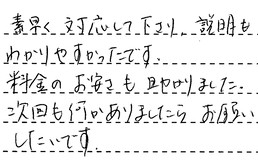 素早く対応して下さり、説明も
わかりやすかったです。
料金のお安さも助かりました。
次回も何かありましたらお願い
したいです